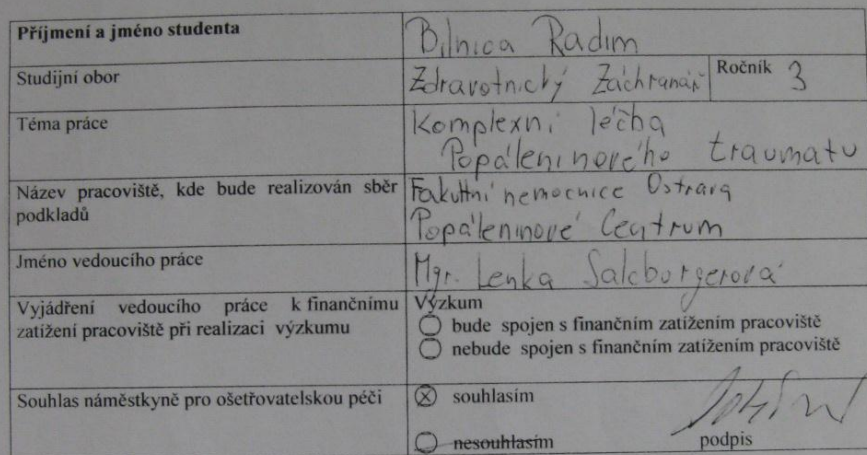 Příjmení a jméno studenta Bilnica Radim
Studijní obor Zdravotnický Záchranář Ročník 3
Téma práce Komplexní léčba
Popáleninového traumatu
Název pracoviště, kde bude realizován sběr Fakultní nemocnice Ostrava
podkladů Popáleninové Centrum
Jméno vedoucího práce Mgr. Lenka Salcburgerová
Vyjádření vedoucího práce k finančnímu Výzkum
zatížení pracoviště při realizaci výzkumu bude spojen s finančním zatížením pracoviště
nebude spojen s finančním zatížením pracoviště
Souhlas náměstkyně pro ošetřovatelskou péči souhlasím
nesouhlasím podpis